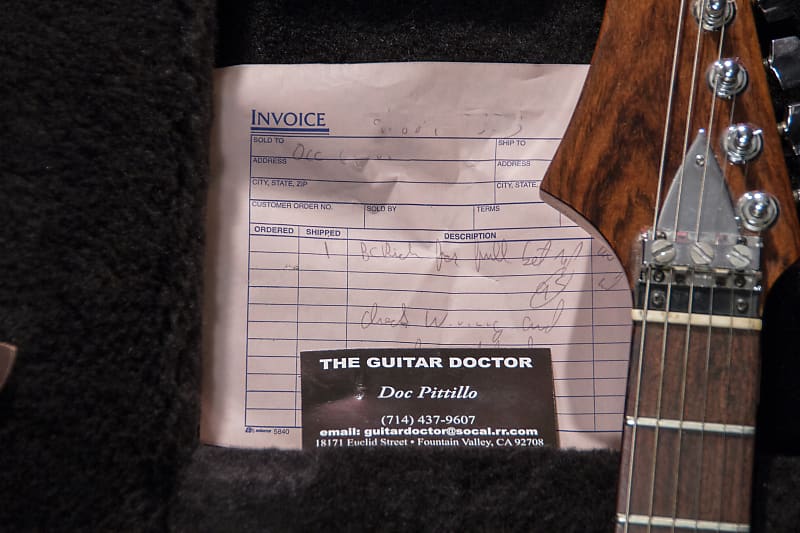 INVOICE
SOLD TO
SHIP TO
ADDRESS
ADDRESS
CITY, STATE, ZIP
CITY, STATE,
CUSTOMER ORDER NO.
SOLD BY
TERMS
ORDERED SHIPPED DESCRIPTION
1 BC Rich for full set
check and
THE GUITAR DOCTOR
Doc Pittillo
(714) 437-9607
email: guitardoctor@socal.rr.com
18171 Euclid Street • Fountain Valley, CA 92708
5840